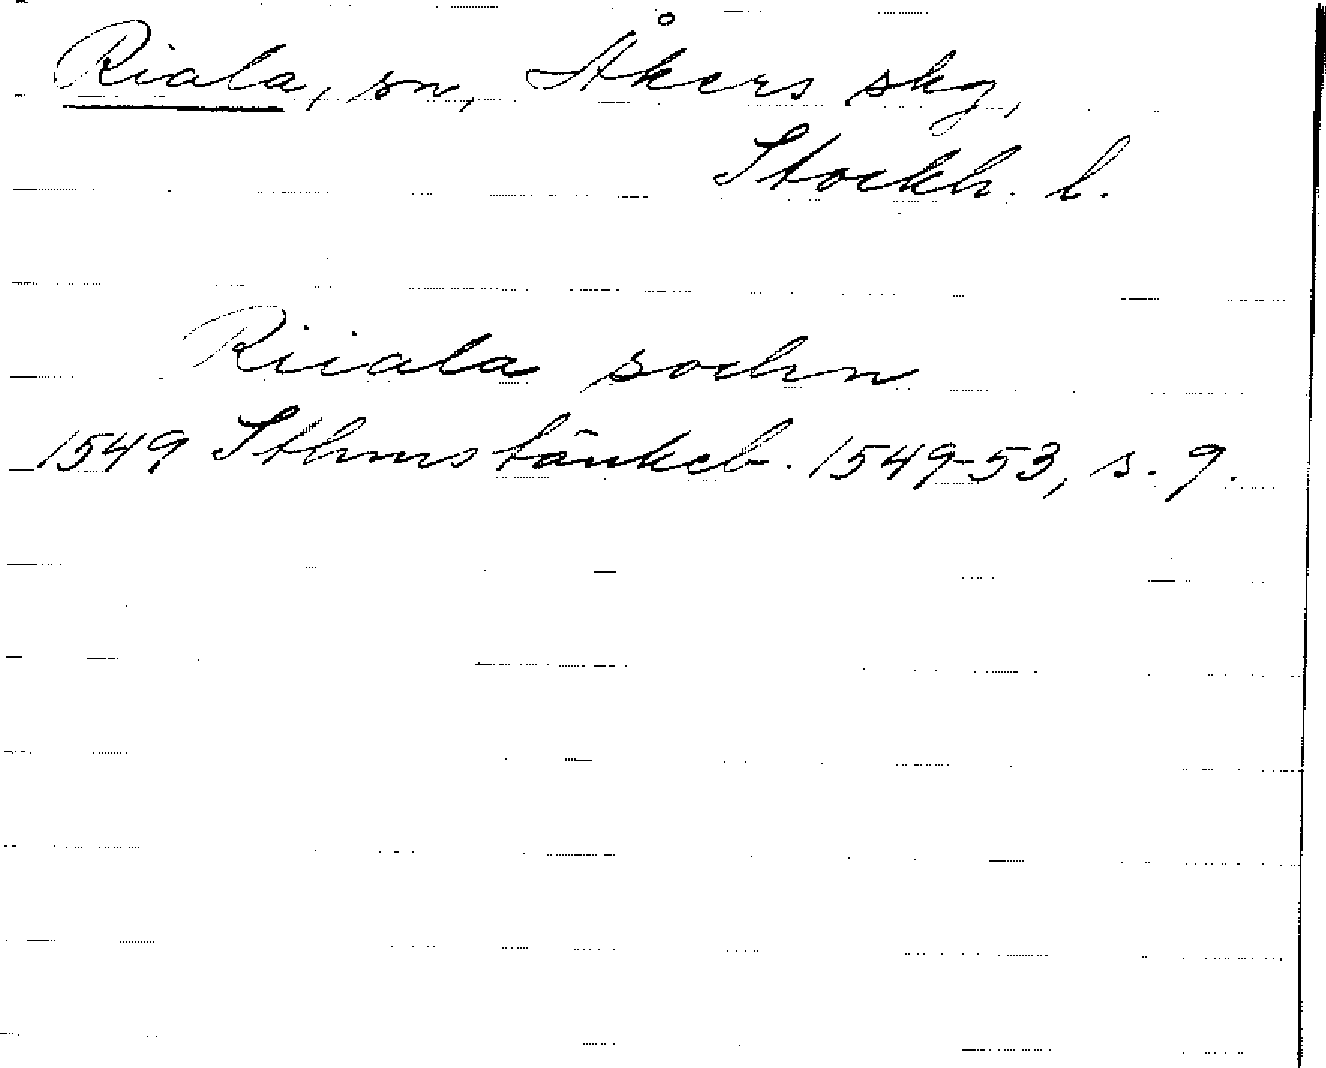 Riala, sn, Åkers skg,
Stockh. l.
Riiala sochn
1549 Sthms tänkeb. 1549-53, s. 9.